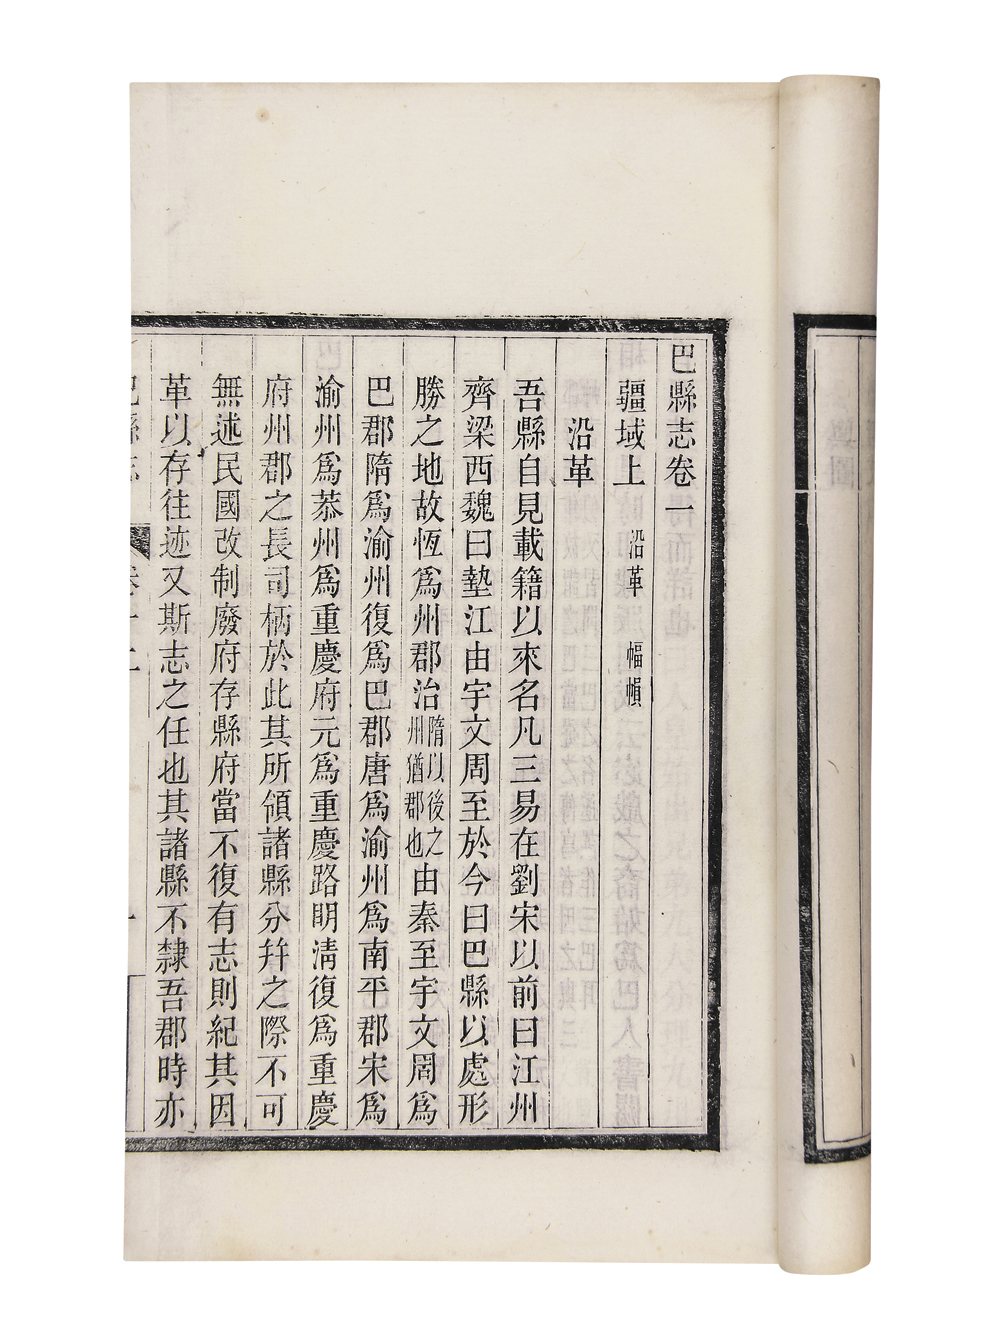 巴縣志卷一
疆域上 沿革 幅幀
沿革
吾縣自見載籍以來名凡三易在劉宋以前曰江州
齊梁西魏曰墊江由宇文周至於今曰巴縣以處形
勝之地故恆爲州郡治隋以後之州猶郡也由秦至宇文周爲
巴郡隋爲渝州復爲巴郡唐爲渝州爲南平郡宋爲
渝州爲恭州爲重慶府元爲重慶路明清復爲重慶
府州郡之長司柄於此其所領諸縣分幷之際不可
無述民國改制廢府存縣府當不復有志則紀其因
革以存往迹又斯志之任也其諸縣不隸吾郡時亦
巴縣志 卷一上 一